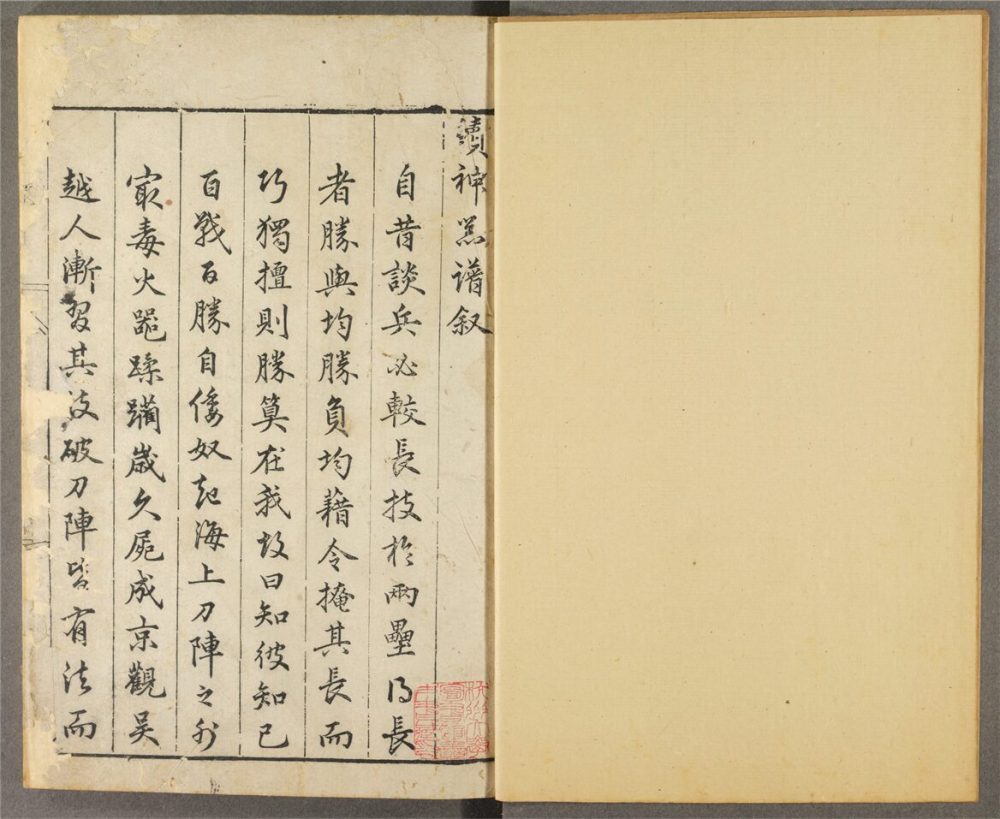 讀神器譜叙
自昔談兵必較長技於兩壘得長
者勝與均勝負均藉令掩其長而
巧獨擅則勝算在我故曰知彼知己
百戰百勝自倭奴起海上刀陣之外
最毒火器蹂躪歲久屍成京觀吳
越人漸習其技破刀陣皆有法而